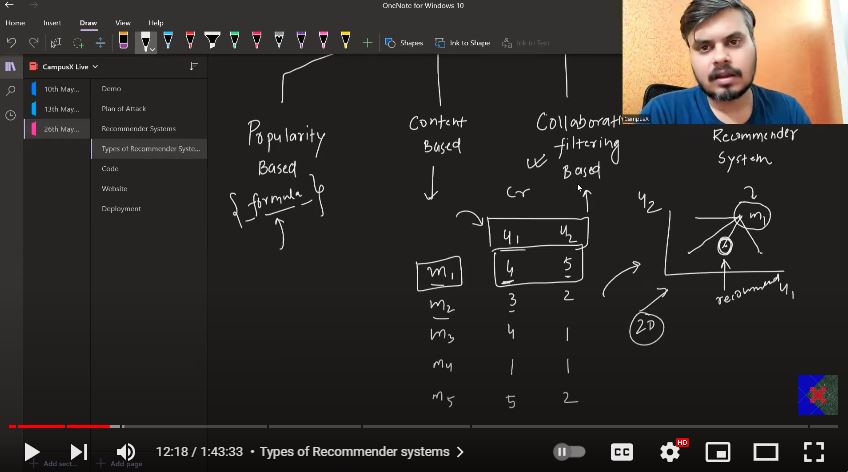 OneNote for Windows 10
Home
Insert
Draw
View
Help
Shapes
Ink to Shape
Ink to Text
CampusX Live
10th May...
13th May...
26th May...
Demo
Plan of Attack
Recommender Systems
Types of Recommender Syste...
Code
Website
Deployment
Add sect...
Add page
Popularity
Based
{ formula }
Content
Based
Collaborati
filtering
Based
CampusX
Recommender
System
u1 u2
m1 4 5
m2 3 2
m3 4 1
m4 1 1
m5 5 2
u2
m1
recommend
u1
2D
12:18 / 1:43:33 • Types of Recommender systems
CC
HD